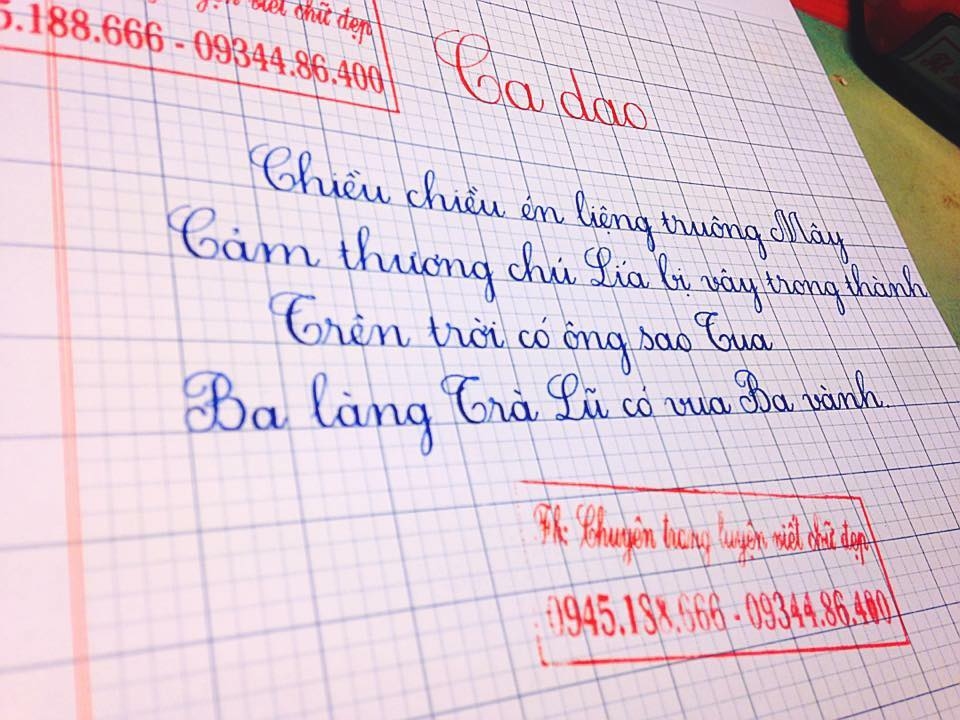 luyện viết chữ đẹp
5.188.666 - 09344.86.400
Ca dao
Chiều chiều én liệng truông Mây
Cảm thương chú Lía bị vây trong thành
Trên trời có ông sao Tua
Ba làng Trà Lũ có vua Ba vành.
Fb: Chuyên trang luyện viết chữ đẹp
0945.188.666 - 09344.86.400